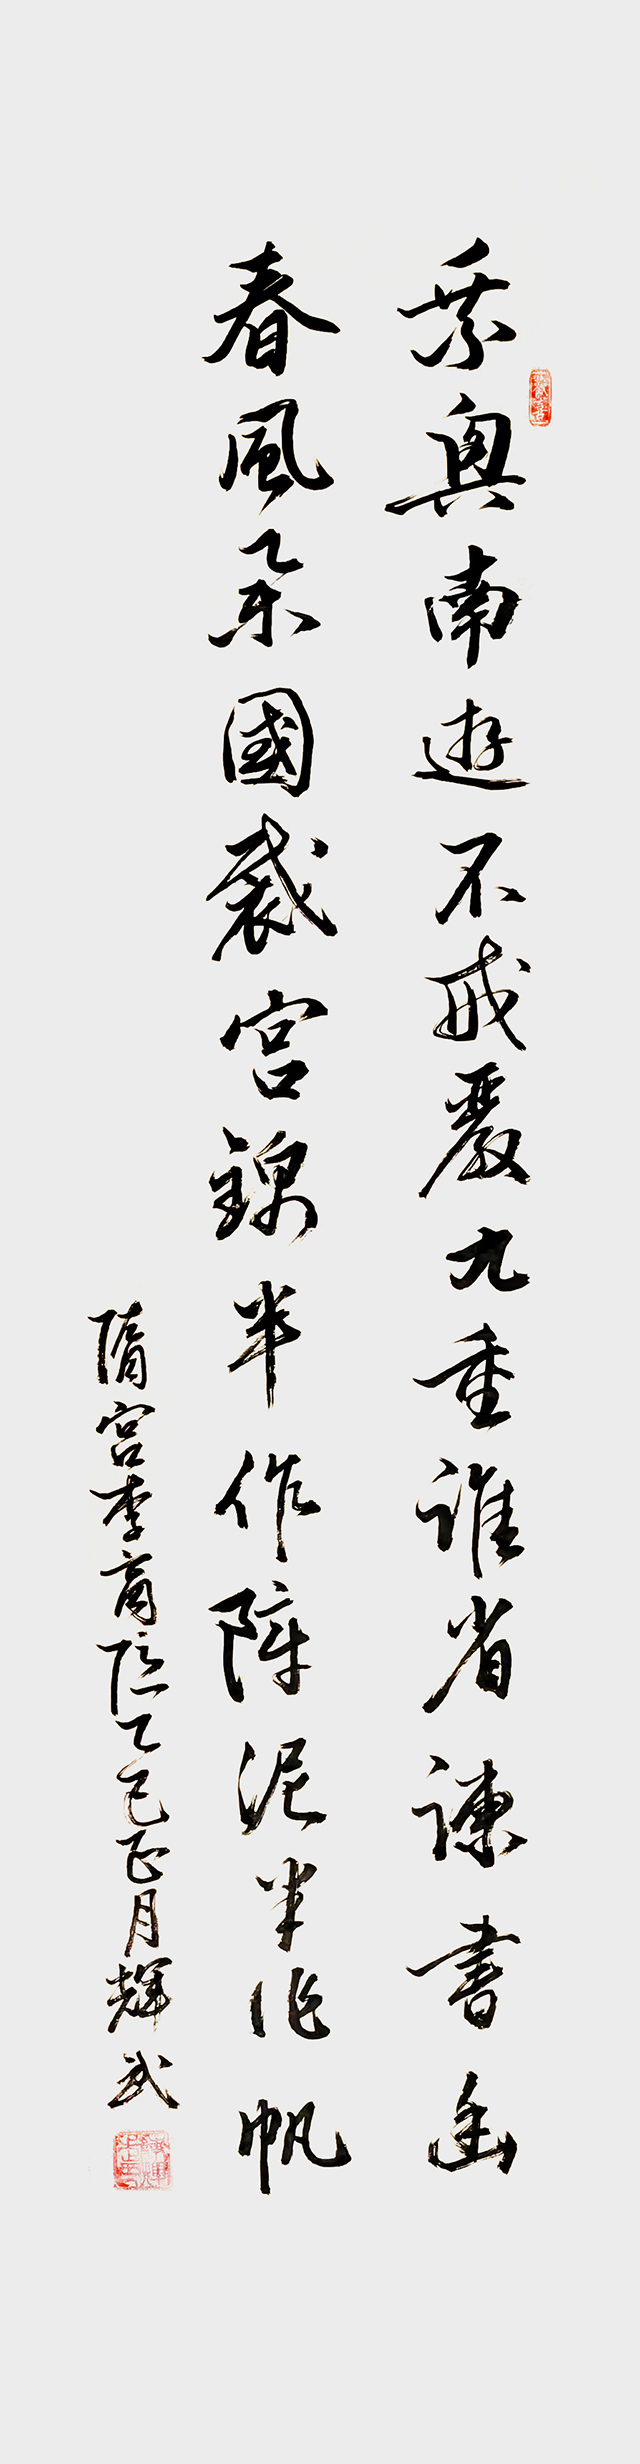 乘輿南遊不戒嚴九重誰省諫書函
春風舉國裁宮錦半作障泥半作帆
隋宮李商隱乙巳正月輝武